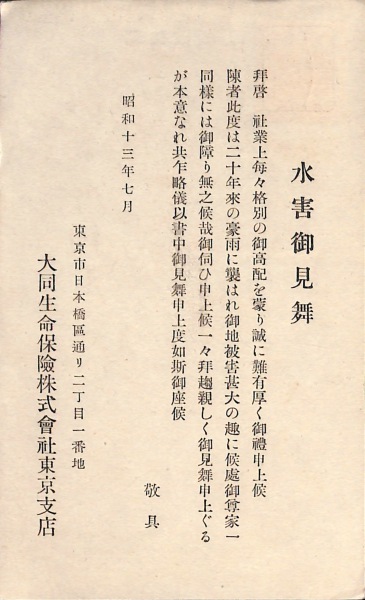 水害御見舞
拜啓　社業上每々格別の御高配を蒙り誠に難有厚く御禮申上候
陳者此度は二十年來の豪雨に襲はれ御地被害甚大の趣に候處御尊家一
同樣には御障り無之候哉御伺ひ申上候一々拜趨親しく御見舞申上ぐる
が本意なれ共乍略儀以書中御見舞申上度如斯御座候
敬具
昭和十三年七月
東京市日本橋區通リ二丁目一番地
大同生命保險株式會社東京支店